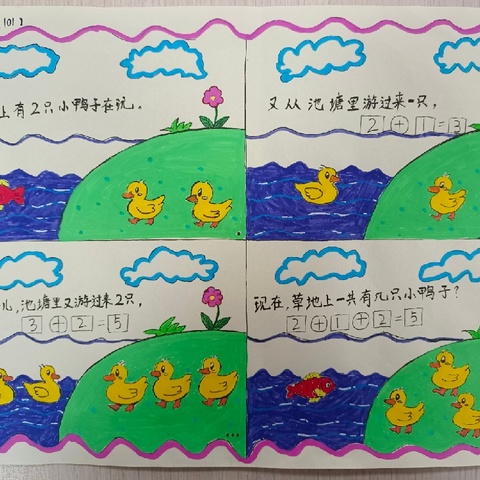 101】
上有2只小鸭子在玩。
又从池塘里游过来一只，
2+1=3
儿，池塘里又游过来2只，
3+2=5
现在，草地上一共有几只小鸭子？
2+1+2=5